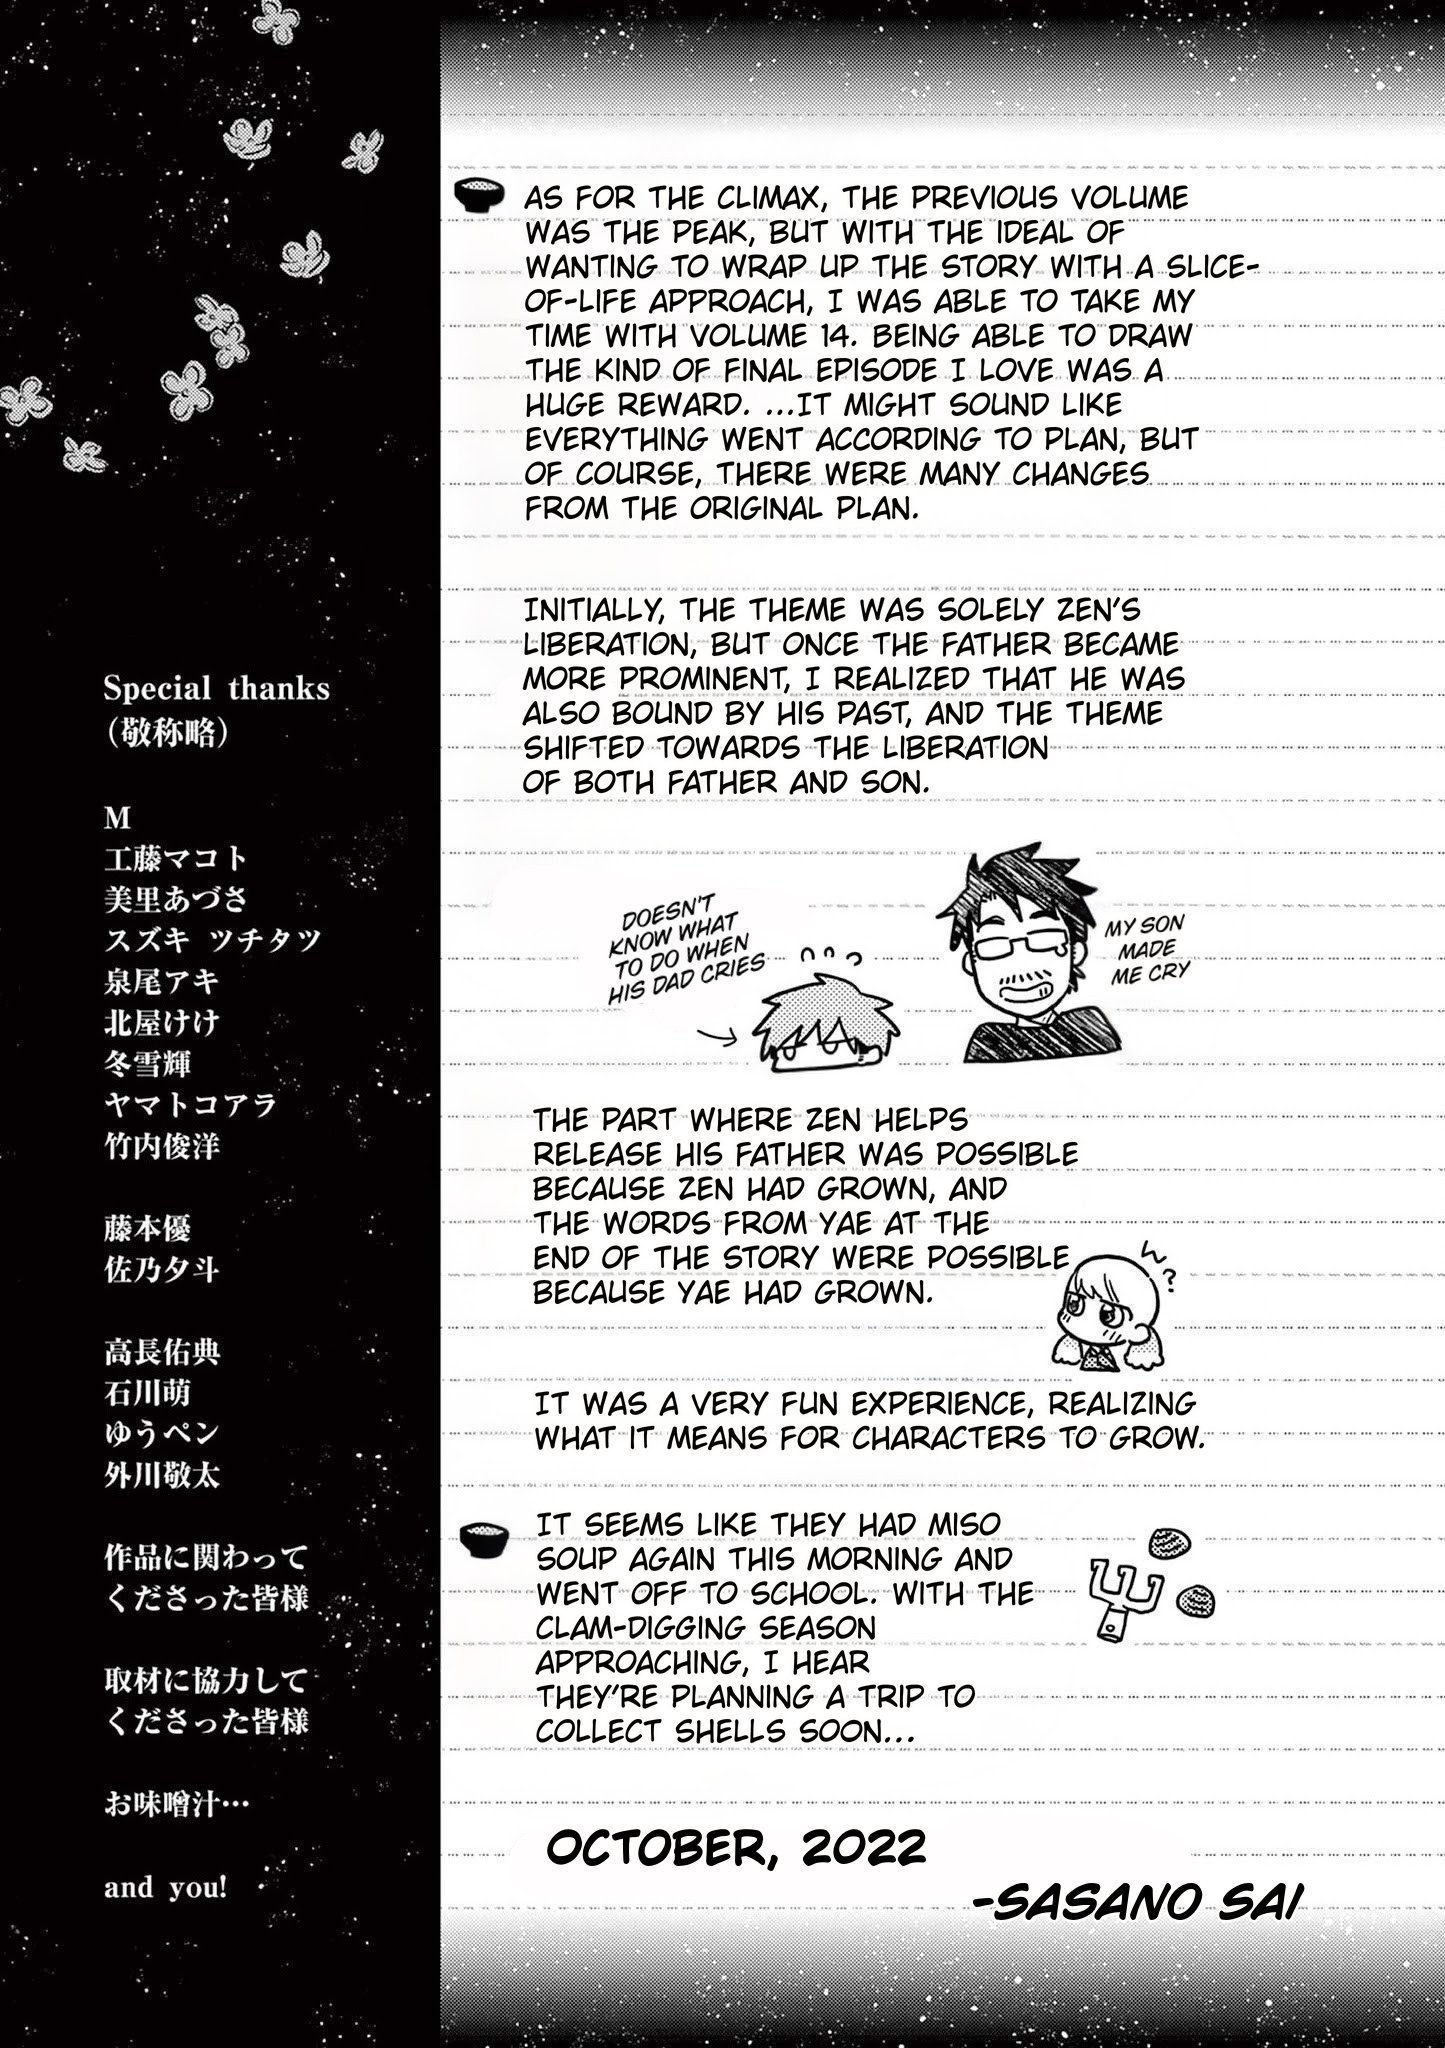 Special thanks
(敬称略)
M
工藤マコト
美里あづさ
スズキ ツチタツ
泉尾アキ
北屋けけ
冬雪輝
ヤマトコアラ
竹内俊洋
藤本優
佐乃夕斗
高長佑典
石川萌
ゆうペン
外川敬太
作品に関わって
くださった皆様
取材に協力して
くださった皆様
お味噌汁…
and you!
AS FOR THE CLIMAX, THE PREVIOUS VOLUME
WAS THE PEAK, BUT WITH THE IDEAL OF
WANTING TO WRAP UP THE STORY WITH A SLICE-
OF-LIFE APPROACH, I WAS ABLE TO TAKE MY
TIME WITH VOLUME 14. BEING ABLE TO DRAW
THE KIND OF FINAL EPISODE I LOVE WAS A
HUGE REWARD. ...IT MIGHT SOUND LIKE
EVERYTHING WENT ACCORDING TO PLAN, BUT
OF COURSE, THERE WERE MANY CHANGES
FROM THE ORIGINAL PLAN.
INITIALLY, THE THEME WAS SOLELY ZEN'S
LIBERATION, BUT ONCE THE FATHER BECAME
MORE PROMINENT, I REALIZED THAT HE WAS
ALSO BOUND BY HIS PAST, AND THE THEME
SHIFTED TOWARDS THE LIBERATION
OF BOTH FATHER AND SON.
DOESN'T
KNOW WHAT
TO DO WHEN
HIS DAD CRIES
MY SON
MADE
ME CRY
THE PART WHERE ZEN HELPS
RELEASE HIS FATHER WAS POSSIBLE
BECAUSE ZEN HAD GROWN, AND
THE WORDS FROM YAE AT THE
END OF THE STORY WERE POSSIBLE
BECAUSE YAE HAD GROWN.
?
IT WAS A VERY FUN EXPERIENCE, REALIZING
WHAT IT MEANS FOR CHARACTERS TO GROW.
IT SEEMS LIKE THEY HAD MISO
SOUP AGAIN THIS MORNING AND
WENT OFF TO SCHOOL. WITH THE
CLAM-DIGGING SEASON
APPROACHING, I HEAR
THEY'RE PLANNING A TRIP TO
COLLECT SHELLS SOON...
OCTOBER, 2022
-SASANO SAI